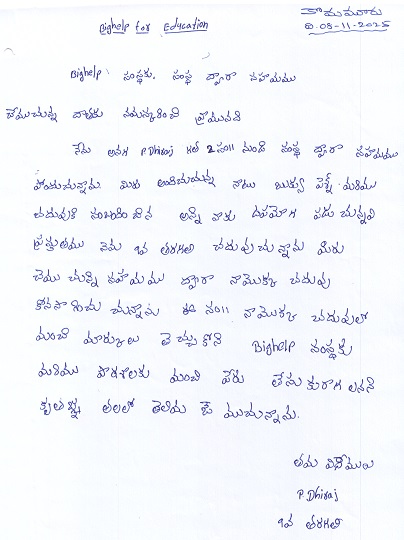 Bighelp for Education
కొమమూరు
ది.08-11-2025
Bighelp సంస్థకు, సంస్థ ద్వారా సహాయము
చేయుచున్న దాతకు నమస్కరించి వ్రాయునది
నేను అనగా P Dhiraj గత 2 సం॥ నుండి సంస్థ ద్వారా సహాయము
పొందుచున్నాను మీరు అందించుచున్న నోటు బుక్స్ పెన్స్ మరియు
చదువుకి సంబంధించిన అన్ని నాకు ఉపయోగ పడుచున్నవి
ప్రస్తుతము నేను 9వ తరగతి చదువుచున్నాను మీరు
చేయుచున్న సహాయము ద్వారా నాయొక్క చదువు
కొనసాగించుచున్నాను ఈ సం॥ నాయొక్క చదువులో
మంచి మార్కులు తెచ్చుకొని Bighelp సంస్థకు
మరియు పాఠశాలకు మంచి పేరు తీసుకురాగలనని
కృతజ్ఞతలతో తెలియజేయుచున్నాను.
తమ విధేయుడు
P. Dhiraj
9వ తరగతి